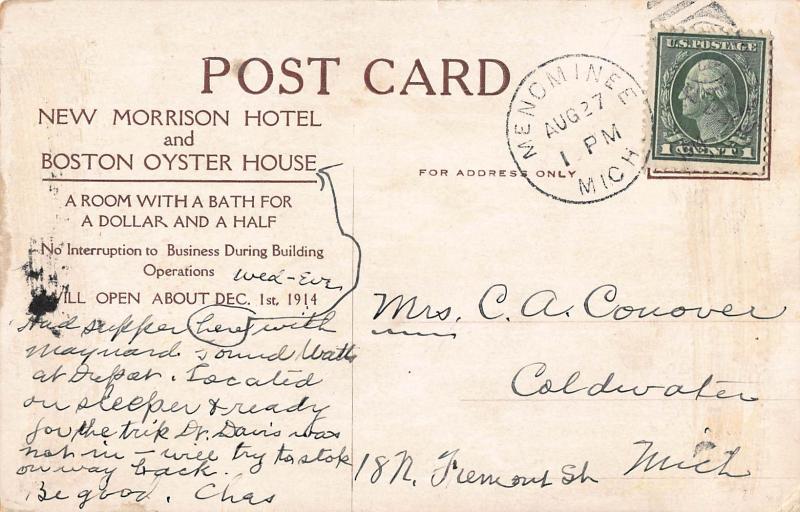 POST CARD
NEW MORRISON HOTEL
and
BOSTON OYSTER HOUSE
A ROOM WITH A BATH FOR
A DOLLAR AND A HALF
No Interruption to Business During Building
Operations
WILL OPEN ABOUT DEC. 1st, 1914
Wed-Eve
Had supper here with
Maynard. Found Watts
at Depot. Located
on sleeper & ready
for the trip Dr. Davis was
not in - will try to stop
on way back.
Be good. Chas
MENOMINEE
AUG 27
1 PM
MICH
U.S. POSTAGE
1 CENT 1
FOR ADDRESS ONLY
Mrs. C. A. Conover
Coldwater
18 N. Fremont St. Mich